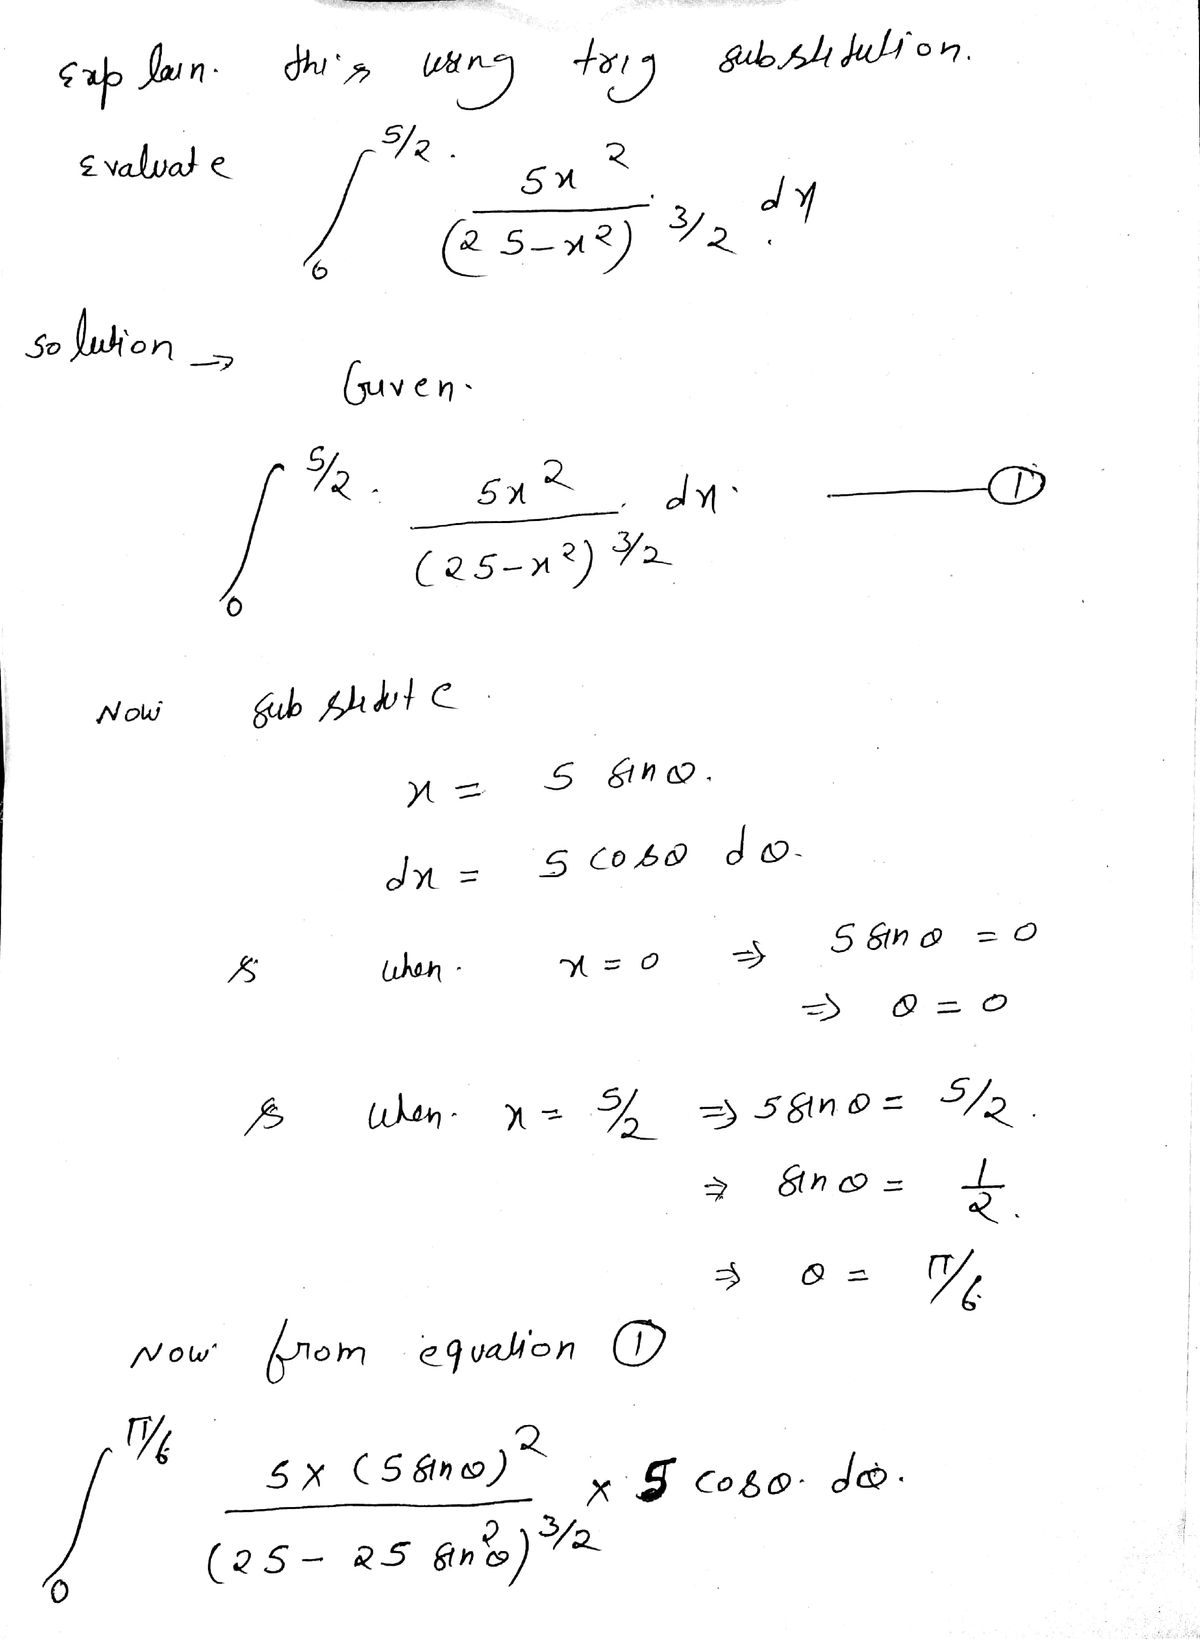 Explain. this using trig substitution.
Evaluate ∫₀^{5/2} 5x² / (25-x²)^{3/2} dx.
Solution →
Given.
∫₀^{5/2} 5x² / (25-x²)^{3/2} dx. —— ①
Now substitute
x = 5 sinθ.
dx = 5 cosθ dθ.
& when. x = 0 ⇒ 5 sinθ = 0
⇒ θ = 0
& when. x = 5/2 ⇒ 5 sinθ = 5/2.
⇒ sinθ = 1/2.
⇒ θ = π/6
Now from equation ①
∫₀^{π/6} 5 × (5 sinθ)² / (25 - 25 sin²θ)^{3/2} × 5 cosθ. dθ.